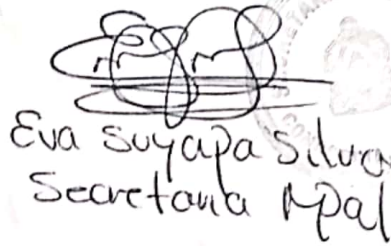 Eva Suyapa Silva
Secretaria Mpal